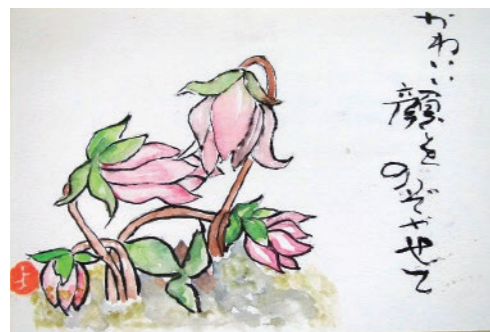 かわいい
顔を
のぞかせて